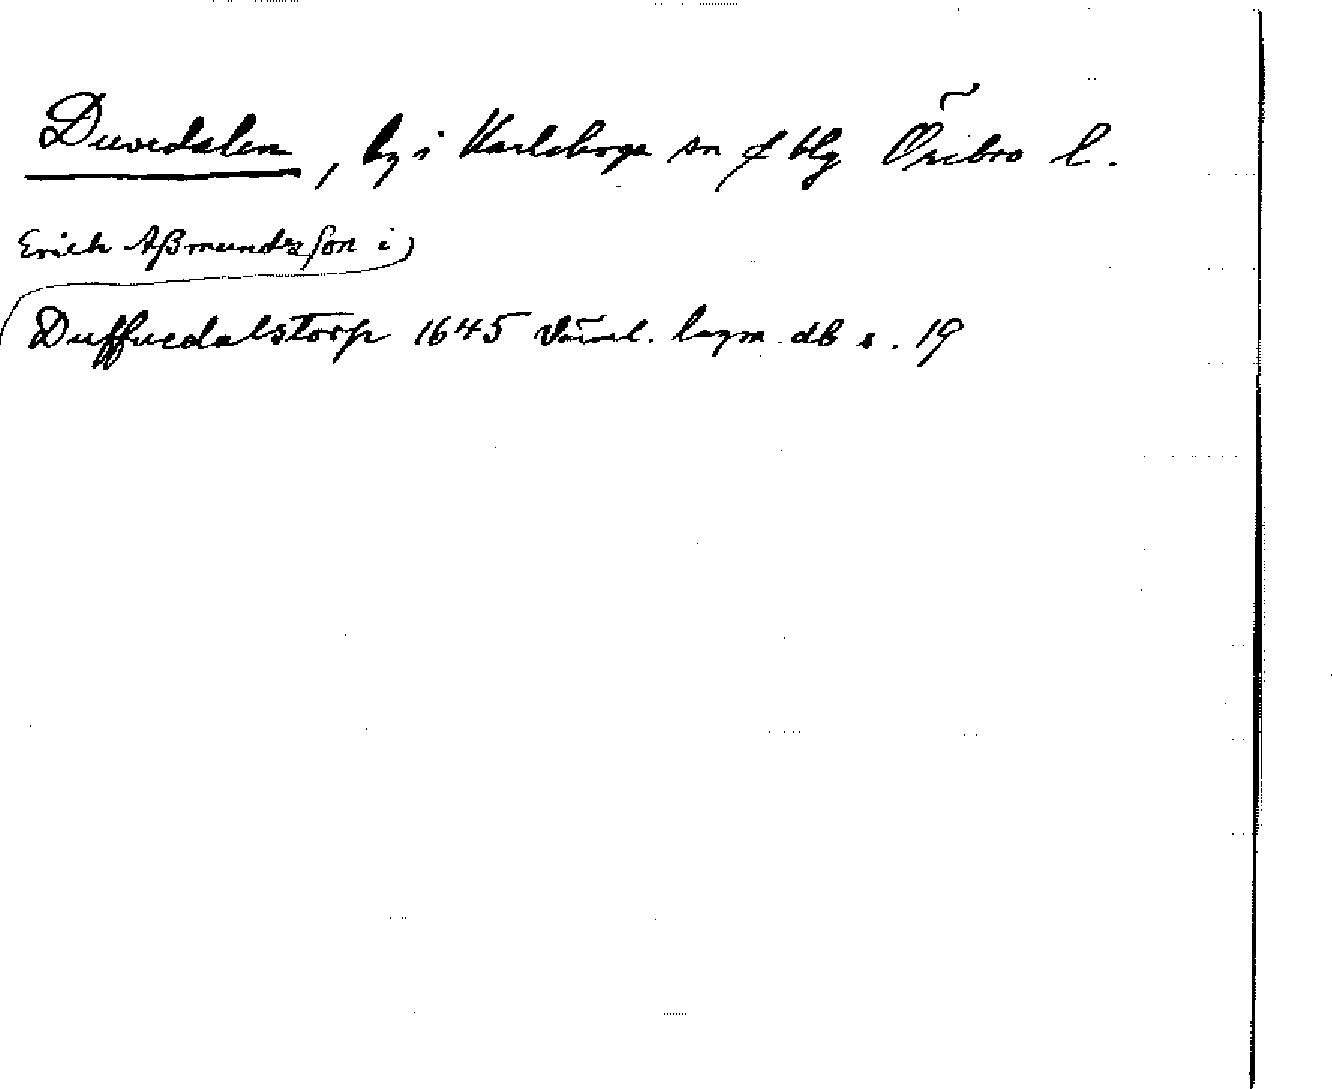 Duvedalen, by i Karlskoga sn o blg Örebro l.
Erich Aßmundsson i
Duffuedalstorp 1645 Värml. lagm. db s. 19